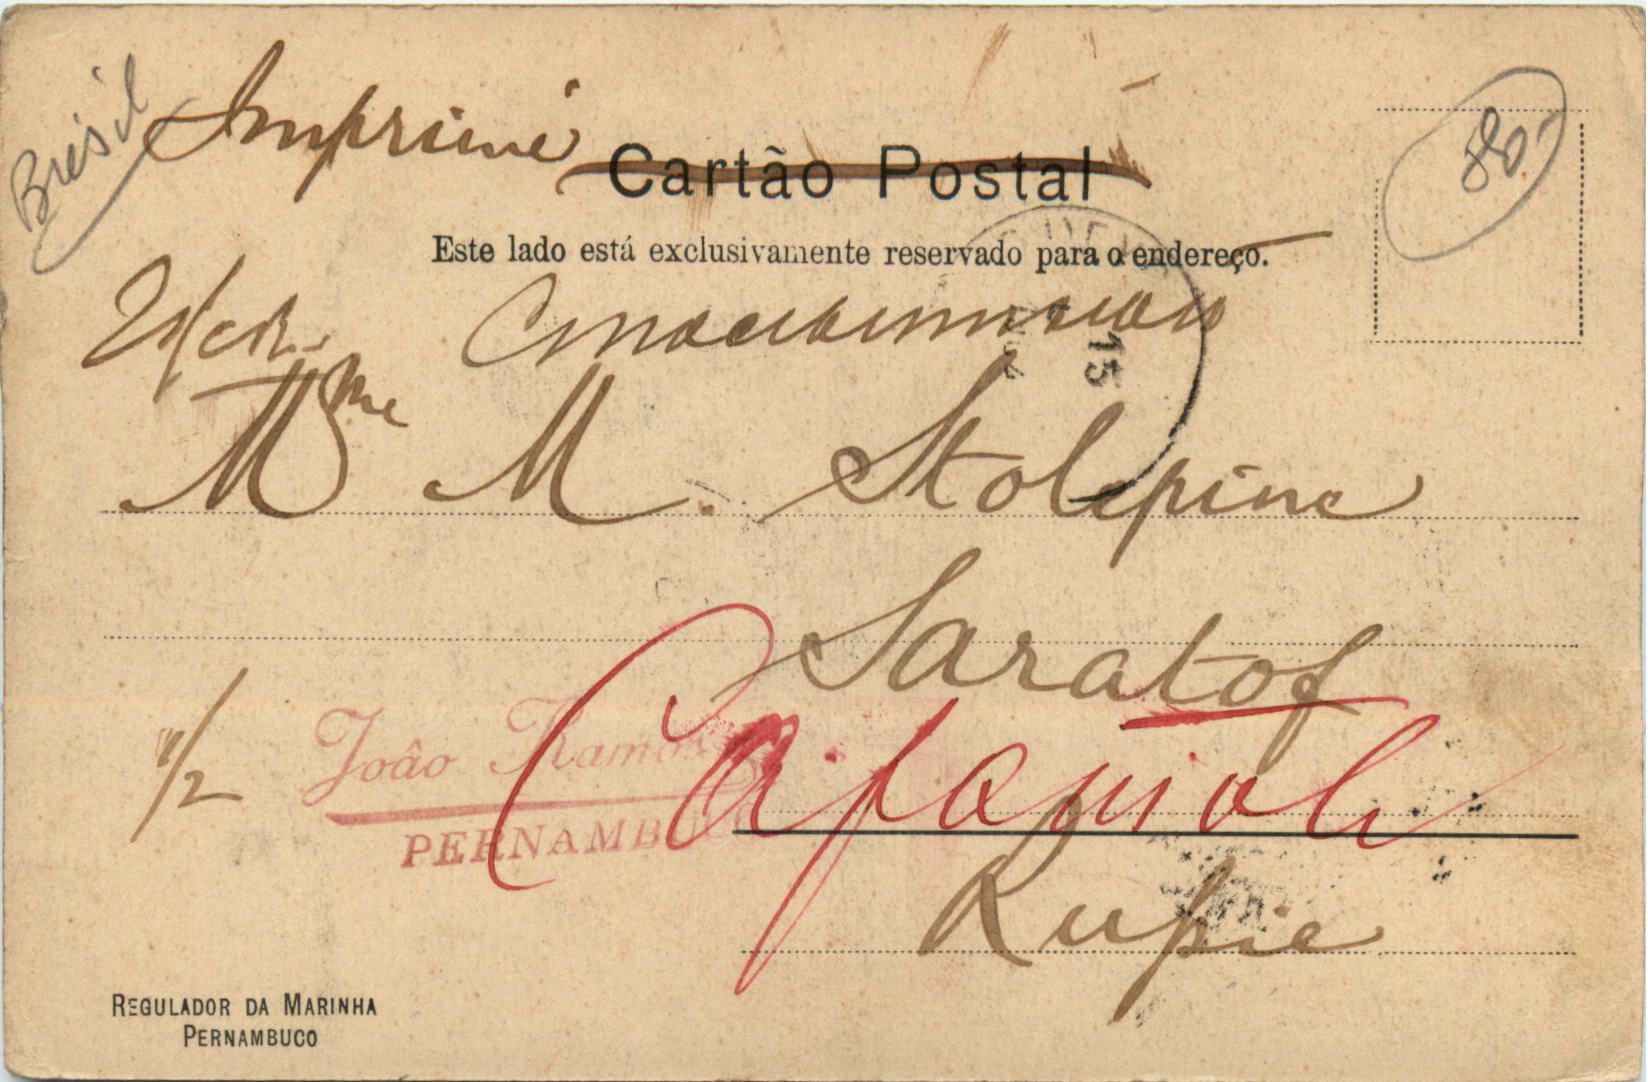 Brésil
Imprimé
80.-
Cartão Postal
Este lado está exclusivamente reservado para o endereço.
15
Mme M. Stolepine
Saratof
João Ramos
PERNAMBUCO
Саратовъ
Russie
REGULADOR DA MARINHA
PERNAMBUCO